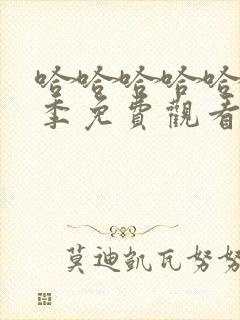 哈哈哈哈哈
季免費觀看
莫迪凱瓦努努